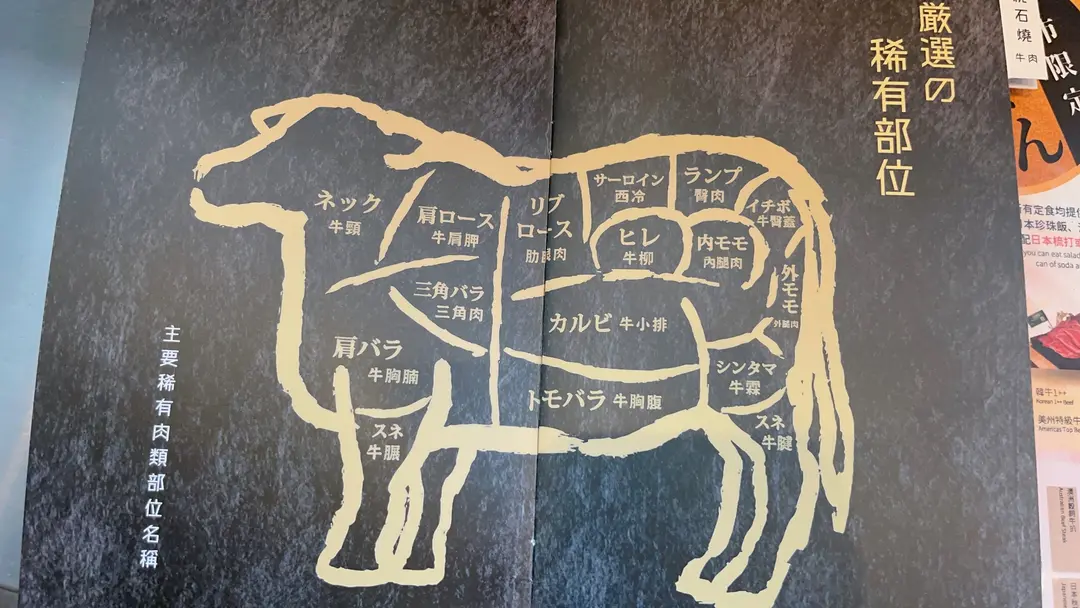 厳選の
稀有部位
ネック
牛頸
肩ロース
牛肩胛
リブ
ロース
肋眼肉
サーロイン
西冷
ランプ
臀肉
イチボ
牛臀蓋
ヒレ
牛柳
内モモ
內腿肉
外モモ
外腿肉
三角バラ
三角肉
カルビ 牛小排
肩バラ
牛胸腩
シンタマ
牛霖
トモバラ 牛胸腹
スネ
牛𦟌
スネ
牛腱
主要稀有肉類部位名稱
石燒
牛肉
市限定
ん
有定食均提供
本珍珠飯、
配日本橋打
you can eat salad
can of soda
韓牛1++
Korean 1++ Beef
美州特級牛